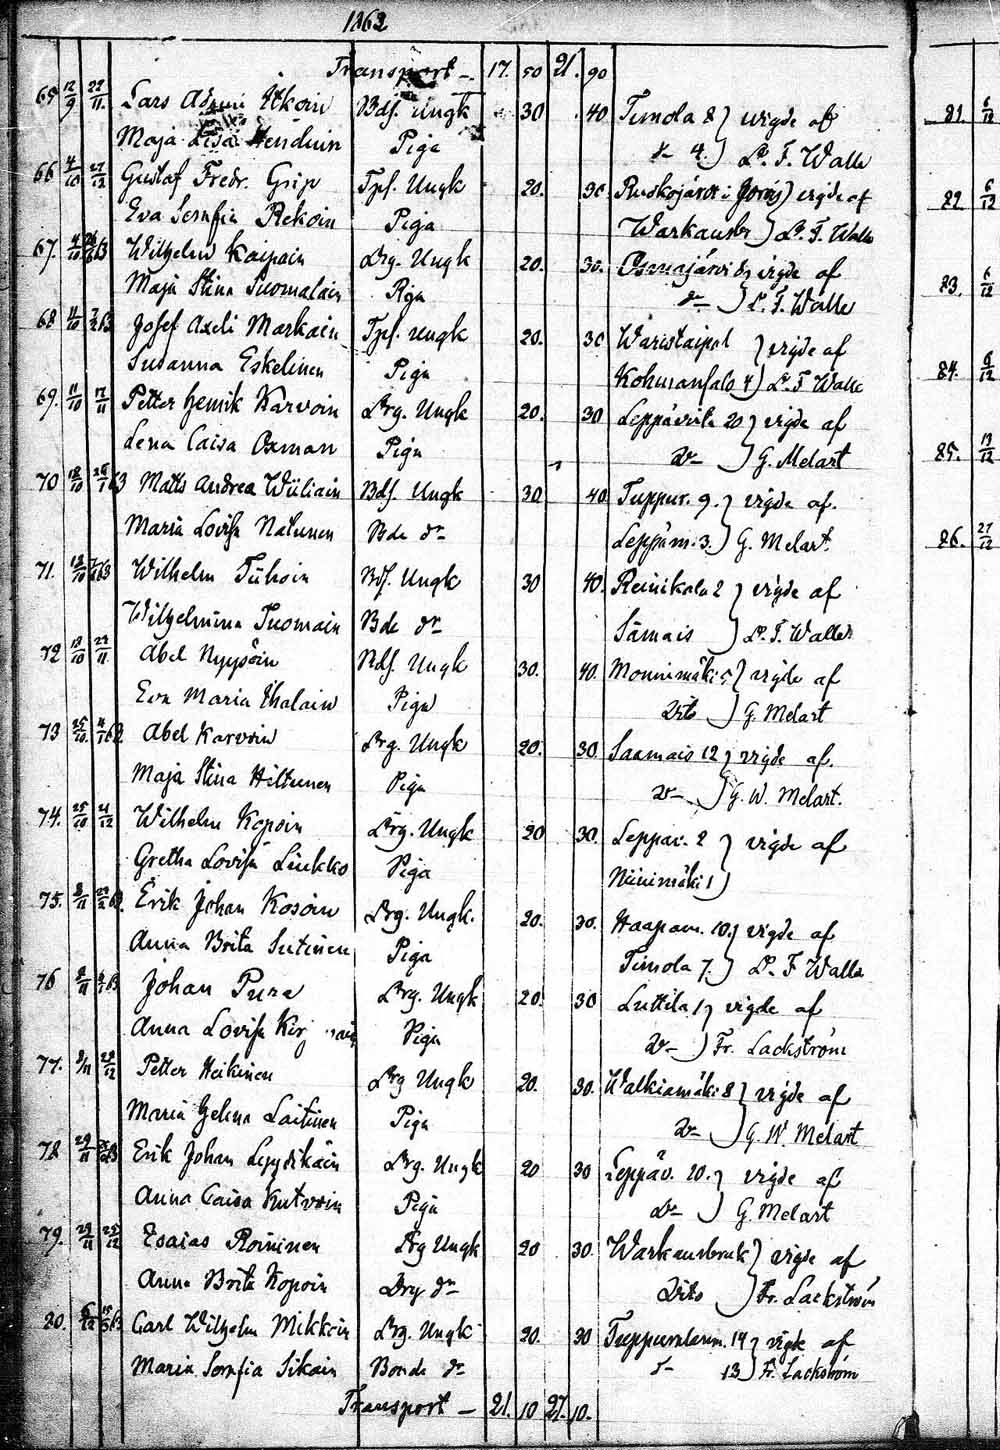 1862
Transport — 17. 50 21. 90
65 12/9 22/11. Lars Adam Itkoin Bds. Ungk 30 40 Timola 8 vigde af
Maja Lisa Piga dr 4. Lr. F. Walle
66 4/10 27/12 Gustaf Fredr. Grip Tpl. Ungk 20. 30 Ruskojärvi vigde af
Eva Serafia Rekoin Piga Warkausbr Lr. F. Walle
67. 4/10 63 Wilhelm Kaipain Lrg. Ungk 20. 30. Osmajärvi vigde af
Maja Stina Tuomalain Piga dr Lr. F. Walle
68 11/10 63 Josef Axeli Markain Tpl. Ungk 20. 30 Waristaipal vigde af
Susanna Eskelinen Piga 4 Lr. F Walle
69. 11/10 17/11 Petter Henrik Karvoin Lrg. Ungk 20. 30 Leppävirta 20 vigde af
Lena Caisa Oxman Piga dr G. Melart
70 18/10 63 Matts Andrea Wiiliain Bds. Ungk 30 40 Tuppur. 9. vigde af.
Maria Lovisa Natunen Bde dr Leppäm. 3. G. Melart.
71. 18/10 63 Wilhelm Tiihoin Bds. Ungk 30 40. Reinikala 2 vigde af
Wilhelmina Tuomain Bde dr Sämais Lr. F. Walle
72 18/10 22/11 Abel Nyyssöin Bds. Ungk 30. 40. Monnimäki 5 vigde af
Eva Maria Ihalain Piga Dito G. Melart
73 25/10. 4/1 63 Abel Karvoin Lrg. Ungk 20. 30. Saamais 12 vigde af.
Maja Stina Hiltunen Piga dr G. W. Melart.
74. 25/10 21/12 Wilhelm Kopoin Lrg. Ungk 20 30. Leppäv. 2 vigde af
Gretha Lovisa Liukko Piga Niinimäki 1
75. 8/11 Erik Johan Kosoin Lrg. Ungk. 20. 30. Haapam. 10. vigde af
Anna Brita Sutinen Piga Timola 7. Lr. F Walle
76 8/11 63 Johan Pura Lrg. Ungk 20. 30 Luttila 1 vigde af
Anna Lovisa Piga dr Fr. Lackström
77. 9/11 28/12 Petter Heikinen Lrg Ungk 20. 30. Walkiamäki 8 vigde af
Maria Helena Laitinen Piga dr G. W. Melart
78 29/11 63 Erik Johan Lyydikäin Lrg. Ungk 20 30 Leppäv. 20. vigde af
Anna Caisa Kutvoin Piga dr G. Melart
79. 29/11 25/12 Esaias Roininen Lrg Ungk 20 30. Warkausbruk vigde af
Anna Brita Kopoin Drg dr Dito Fr. Lackström
80. 6/12 63 Carl Wilhelm Mikkoin Lrg. Ungk 20. 30 14 vigde af
Maria Serafia Sikain Bonde dr 13 Fr. Lackström
Transport — 21. 10 27. 10.
81. 6/12
82 6/12
83. 6/12
84. 6/12
85. 13/12
86. 27/12